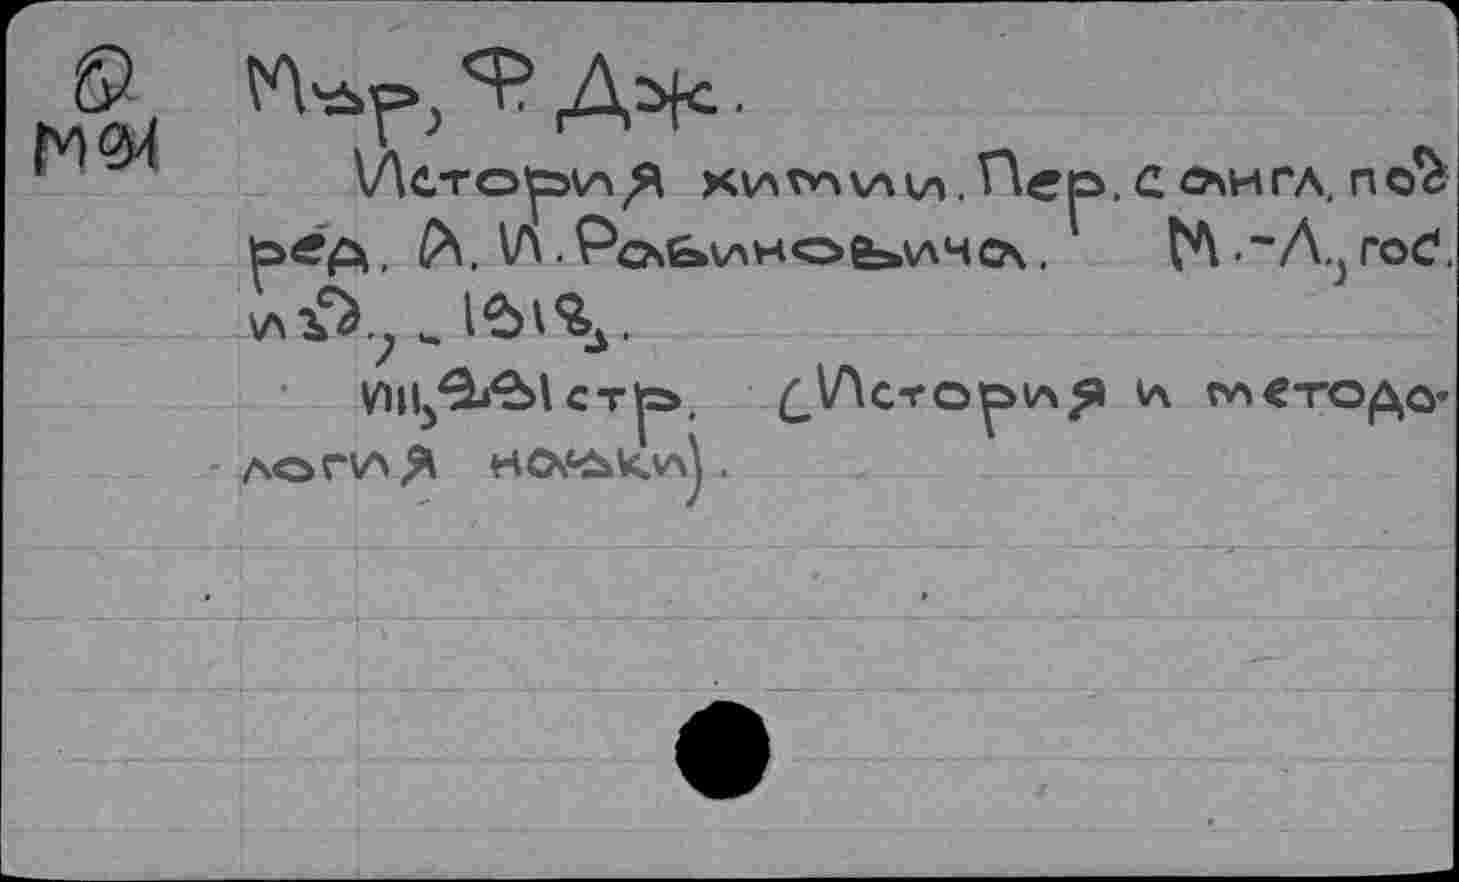 Мур, Ф. Дж.
История химии. Пер. с англ. под
ред. А. И. Рабиновича. М.-Л., гос.
изд.,
стр. (История и методо-
логия науки).